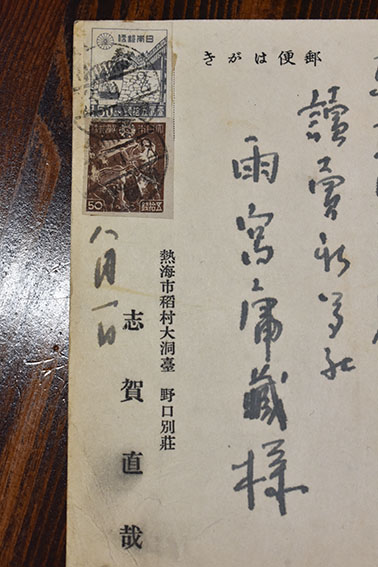 郵便はがき
讀賣新聞社
雨宮庸藏様
熱海市稻村大洞臺 野口別莊
志賀直哉
八月一日
日本郵便
日本郵便
50
五拾錢